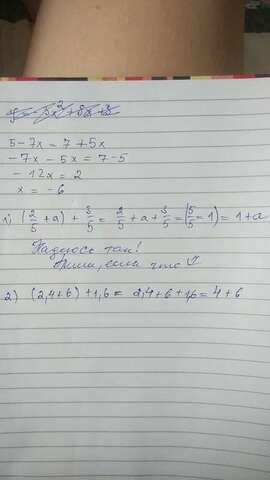 5 - 7x = 7 + 5x
-7x - 5x = 7 - 5
-12x = 2
x = -6
1) (2/5 + a) + 3/5 = 2/5 + a + 3/5 = (5/5 = 1) = 1 + a
Надеюсь так!
Пиши, если что
2) (2,4 + б) + 1,6 = 2,4 + б + 1,6 = 4 + б